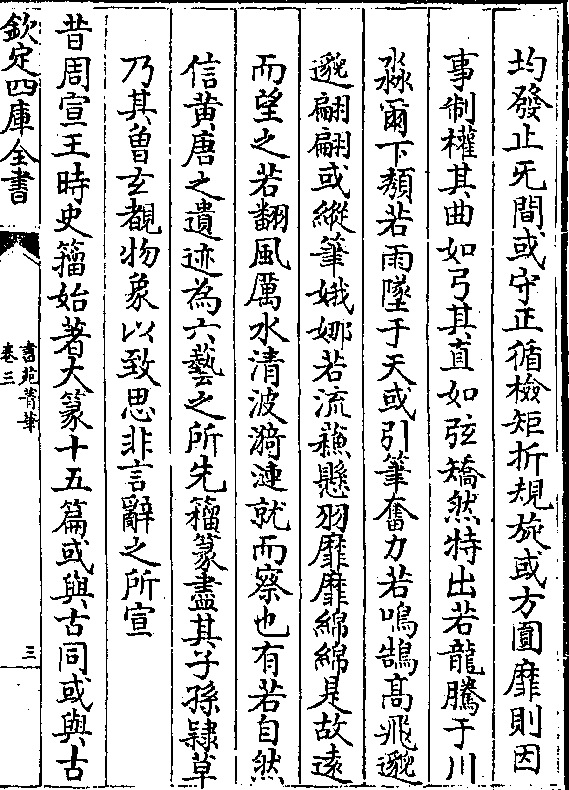 均發止旡間或守正循檢矩折規旋或方圓靡則因
事制權其曲如弓其直如弦矯然特出若龍騰于川
淼爾下頽若雨墜于天或引筆奮力若鳴鵠髙飛邈
邈翩翩或縱筆婀娜若流蘓懸羽靡靡綿綿是故逺
而望之若翻風厲水清波漪漣就而察也有若自然
信黄唐之遺迹為六藝之所先籀篆盡其子孫𨽻草
乃其曽玄覩物象以致思非言辭之所宣
昔周宣王時史籀始著大篆十五篇或與古同或與古
欽定四庫全書
書苑菁華
卷三
三